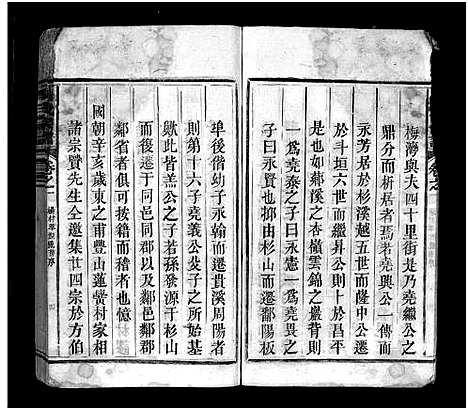 梅灣與夫四十里街是乃堯繼公之
鼎分而析居者焉若堯興公一傳而
永芳居於杉溪越五世而薩中公遷
於斗垣六世而繼昇公則十於昌平
是也如鄰溪之杏攜雲錦之巖背則
一為堯泰之子曰永憲一為堯畏之
子曰永賢抑由杉山而遷鄱陽板
埠後偕幼子永翰而遷貴溪周陽者
則第十六子堯義公芰子之所始基
歟此皆羔公之子若孫發源于杉山
而後遷于阿邑同郡以及鄰邑鄰郡
鄰省者俱可按籍而稽者也憶
國朝辛亥歲東之甫豐山蓮黌村家相
諸宗賢先生仝邀集廿四宗於方伯